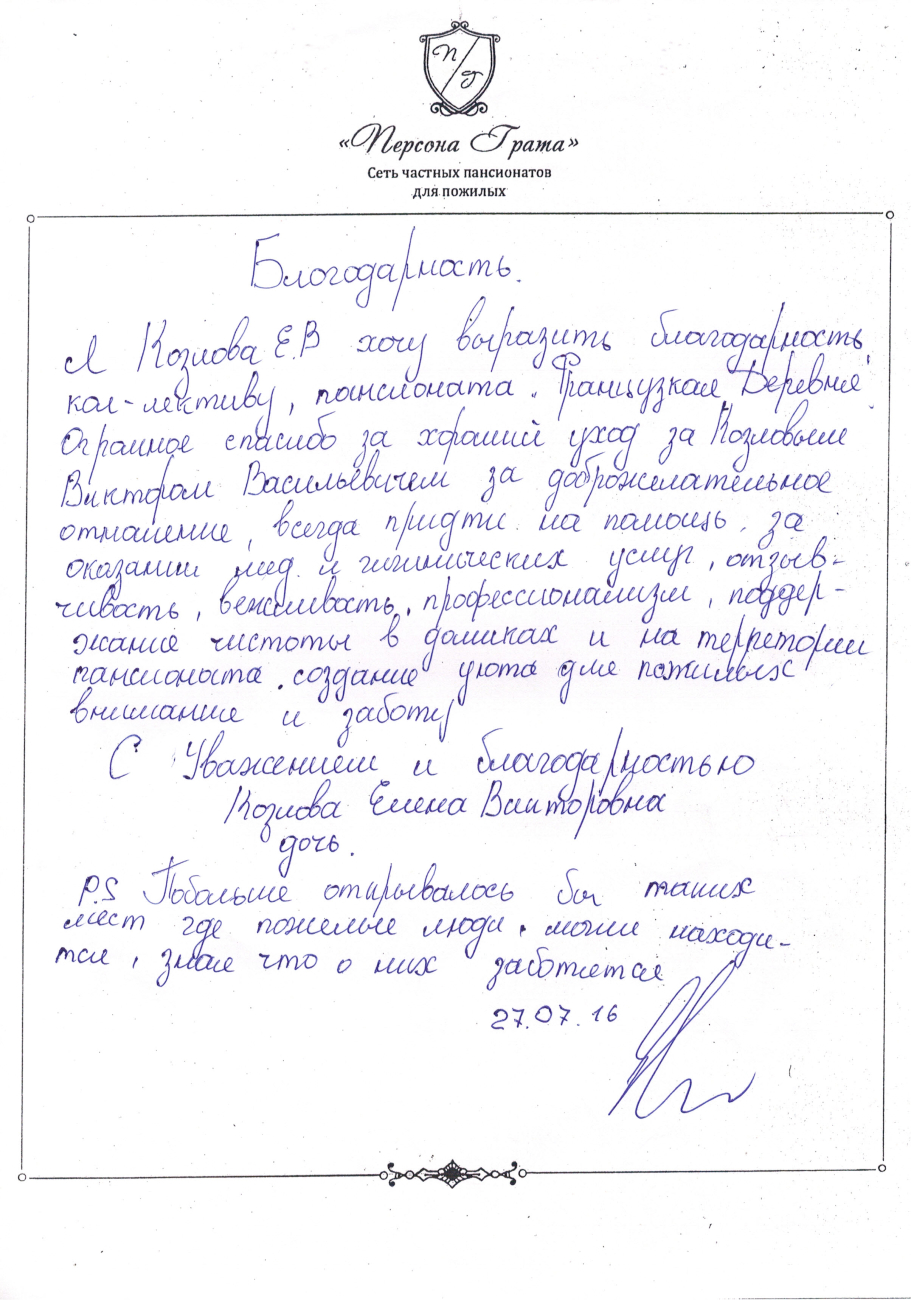 П Г
«Персона Грата»
Сеть частных пансионатов
для пожилых
Благодарность.
Я Козлова Е.В хочу выразить благодарность,
кол-лективу, пансионата "Французкая Деревня"
Огромное спасибо за хороший уход за Козловым
Виктором Васильевичем за доброжелательное
отношение, всегда придти на помощь, за
оказании мед и гигинических услуг, отзыв-
чивость, вежливость, профессионализм, поддер-
жание чистоты в домиках и на терретории
пансионата, создание уюта для пожилых
внимание и заботу
С Уважением и благодарностью
Козлова Елена Викторовна
дочь.
P.S Побольше открывалось бы таких
мест где пожелые люди, могли находи-
тся, зная что о них заботятся
27.07.16